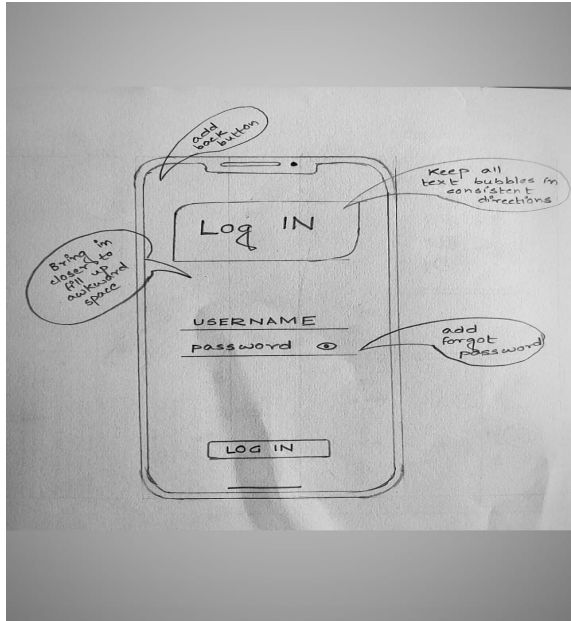 add
back
button
Keep all
text bubbles in
consistent
directions
Log IN
Bring in
closer to
fill up
awkward
space
USERNAME
password
add
forgot
password
LOG IN